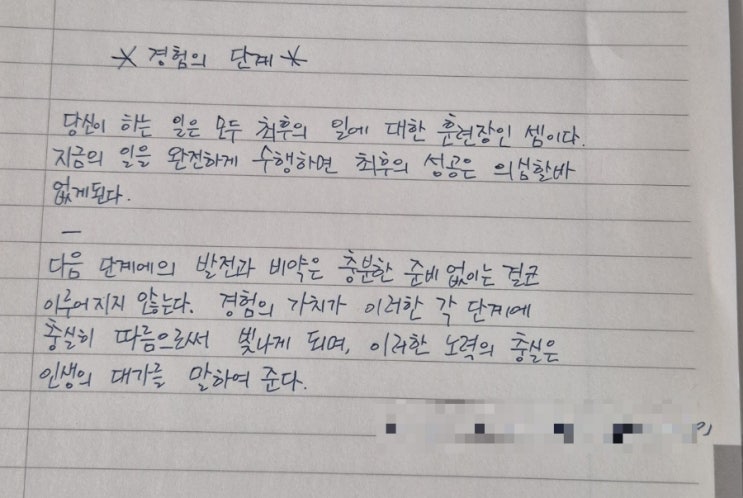 * 경험의 단계 *
당신이 하는 일은 모두 최후의 일에 대한 훈련장인 셈이다.
지금의 일을 완전하게 수행하면 최후의 성공은 의심할바
없게된다.
—
다음 단계에의 발전과 비약은 충분한 준비없이는 결코
이루어지지 않는다. 경험의 가치가 이러한 각 단계에
충실히 따름으로써 빛나게 되며, 이러한 노력의 충실은
인생의 대가를 말하여 준다.